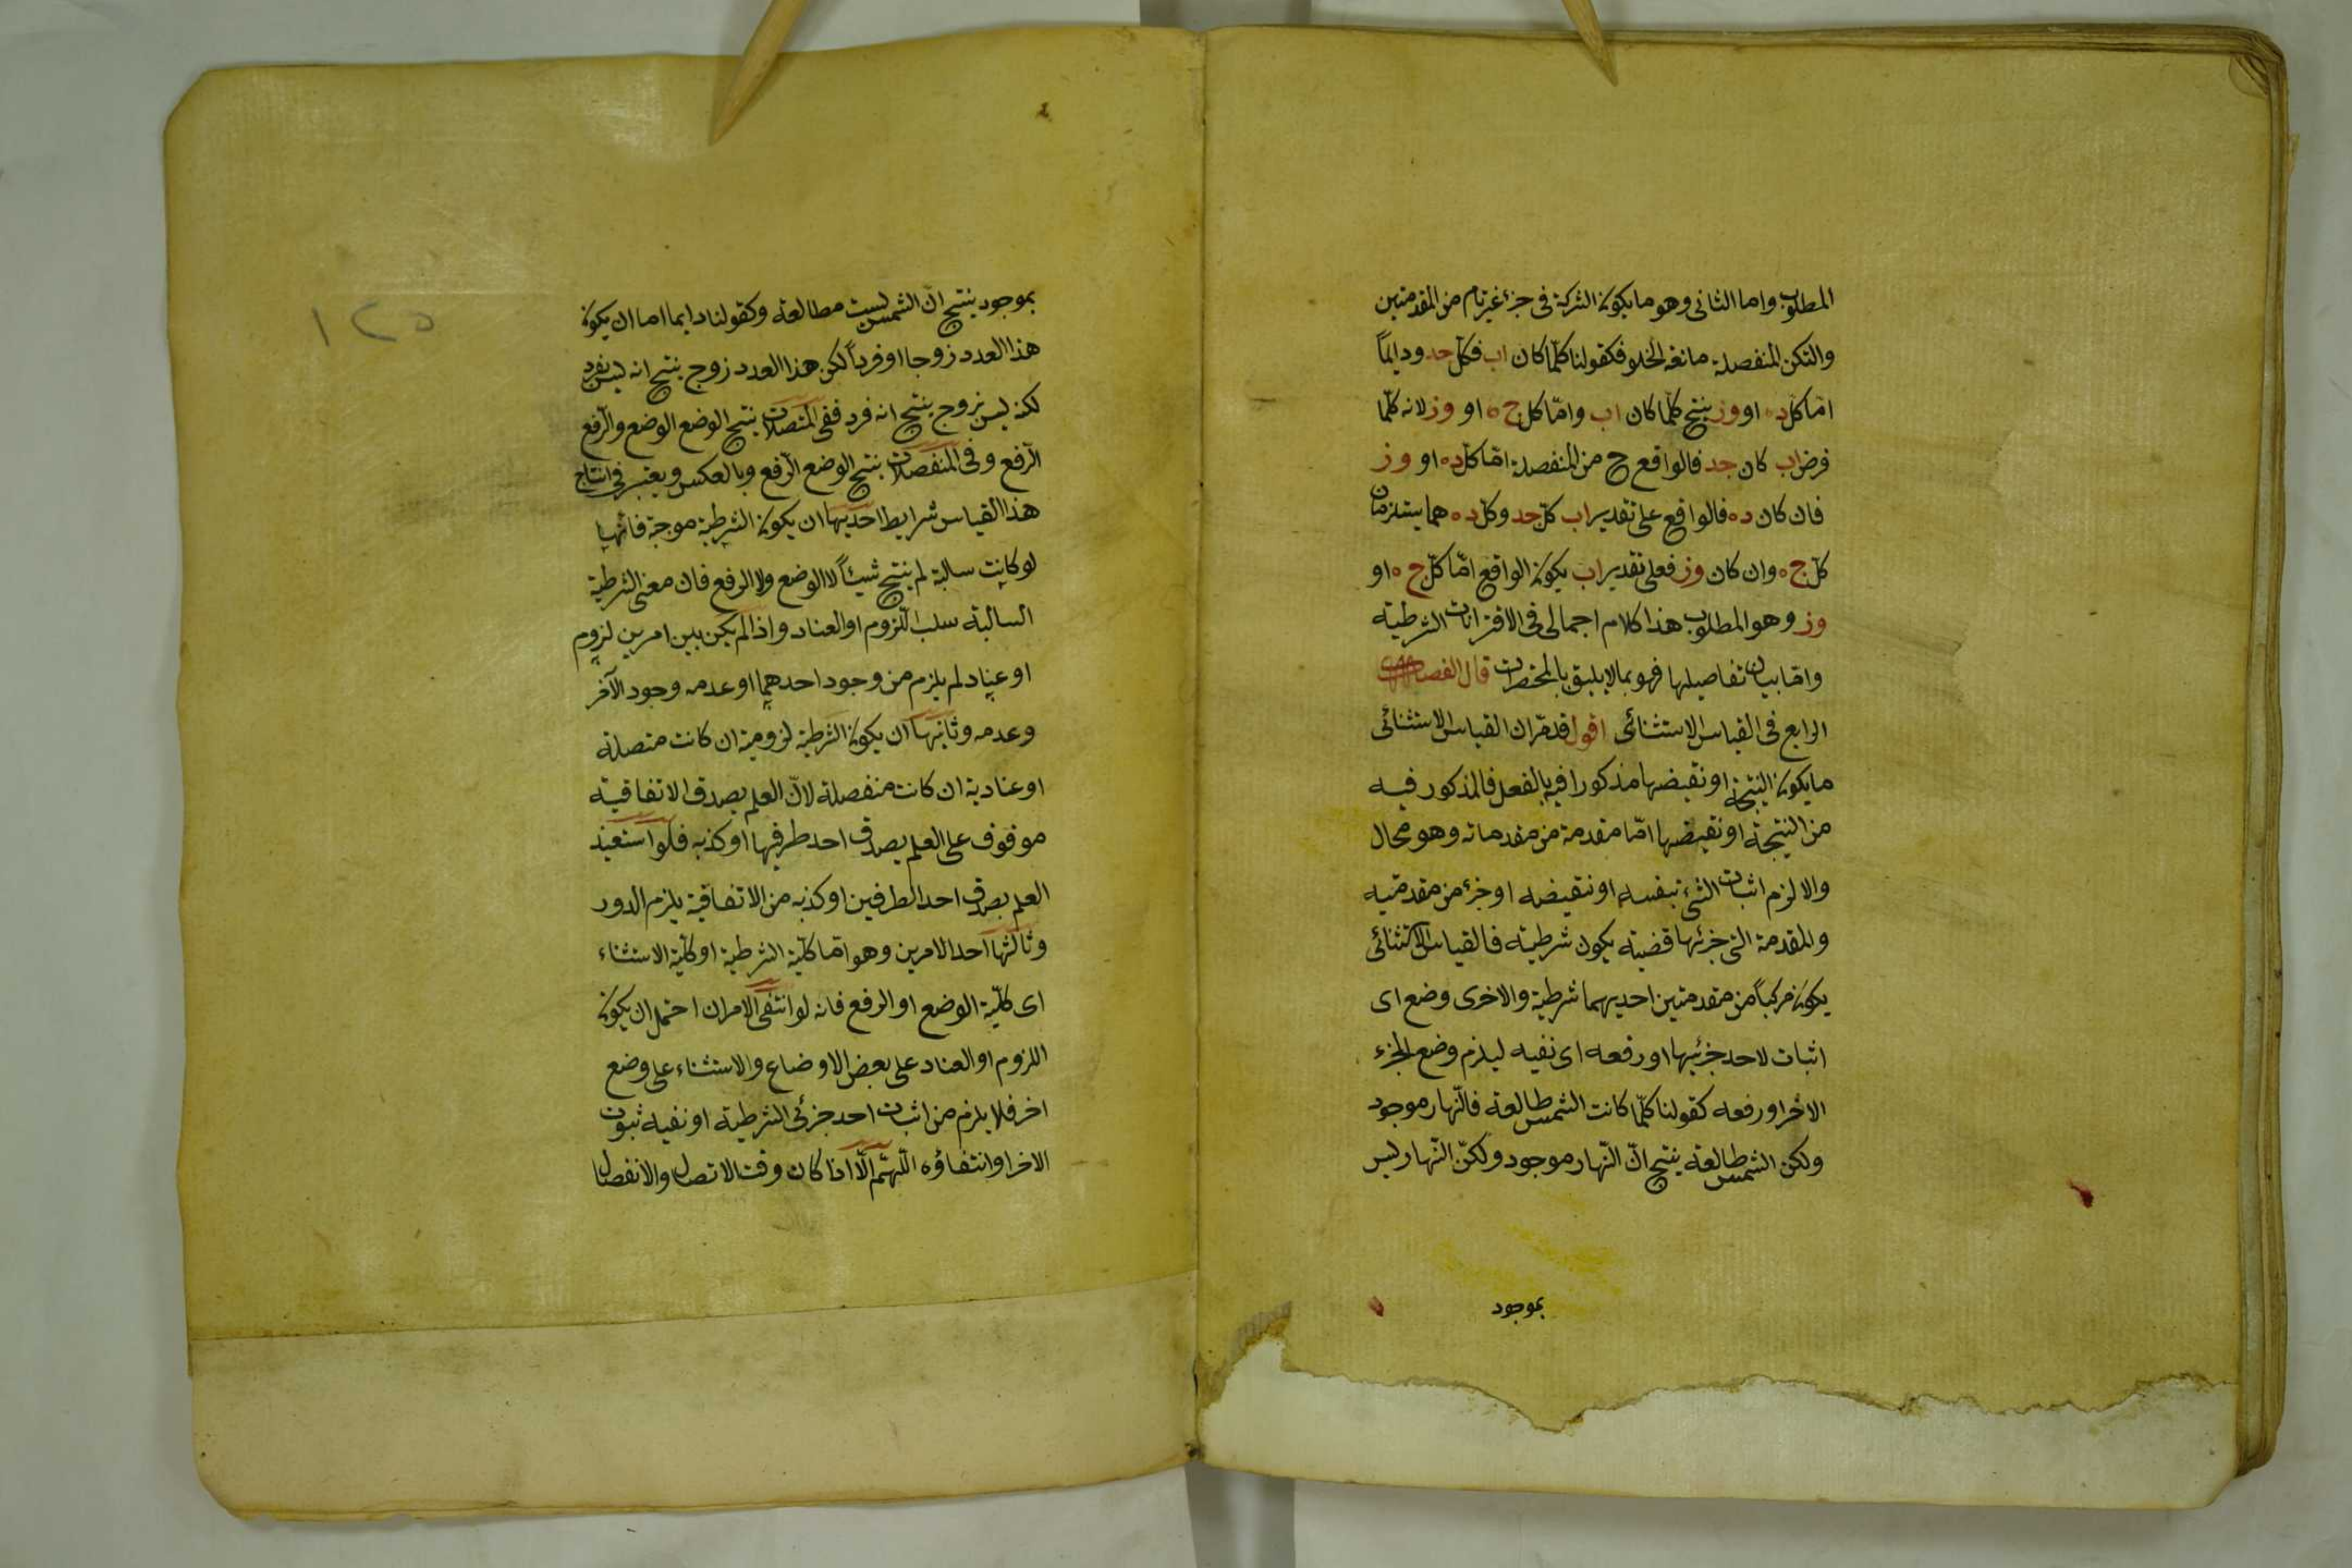 المطلوب واما الثانى وهو ما يكون الشركة فى جزء غير تام من المقدمتين
ولتكن المنفصلة مانعة الخلو فكقولنا كلّما كان اب فكلّ جد ودايماً
امّا كل ده او وز ينتج كلّما كان اب وامّا كل ج ه او وز لانه كلّما
فرض اب كان جد فالواقع ح من المنفصلة امّا كلّ ده او وز
فان كان ده فالواقع على تقدير اب كلّ جد وكلّ ده هما يستلزمان
كلّ ج ه وان كان وز فعلى تقدير اب يكون الواقع امّا كلّ ج ه او
وز وهو المطلوب هذا كلام اجمالى فى الاقترانات الشرطية
وامّا بيان تفاصيلها فهو بما لا يليق بالمختصرات قال الفصل
الرابع فى القياس الاستثنائى اقول قد مرّ ان القياس الاستثنائى
ما يكون النتيجة او نقيضها مذكورا فيه بالفعل فالمذكور فيه
من النتيجة او نقيضها امّا مقدمة من مقدماته وهو محال
والا لزم اثبات الشئ بنفسه او نقيضه او جزء من مقدمتيه
والمقدمة التى جزئها قضية يكون شرطية فالقياس الاستثنائى
يكون مركباً من مقدمتين احديهما شرطية والاخرى وضع اى
اثبات لاحد جزئيها او رفعه اى نفيه ليلزم وضع الجزء
الاخر او رفعه كقولنا كلّما كانت الشمس طالعة فالنّهار موجود
ولكن الشمس طالعة ينتج انّ النّهار موجود ولكنّ النّهار ليس
بموجود
١٢٥
بموجود ينتج انّ الشمس ليست بطالعة وكقولنا دايما اما ان يكون
هذا العدد زوجا او فرداً لكن هذا العدد زوج ينتج انه ليس بفرد
لكنه ليس بزوج ينتج انه فرد ففى المتصلات ينتج الوضع الوضع والرّفع
الرّفع وفى المنفصلات ينتج الوضع الرّفع وبالعكس ويعتبر فى انتاج
هذا القياس شرايط احديها ان يكون الشرطية موجبة فانّها
لو كانت سالبة لم ينتج شيئاً لا الوضع ولا الرفع فان معنى الشرطية
السالبة سلب اللّزوم او العناد واذا لم يكن بين امرين لزوم
او عناد لم يلزم من وجود احدهما او عدمه وجود الآخر
وعدمه وثانيها ان يكون الشرطية لزومية ان كانت متصلة
او عنادية ان كانت منفصلة لانّ العلم بصدق الاتفاقية
موقوف على العلم بصدق احد طرفيها او كذبه فلو استفيد
العلم بصدق احد الطرفين او كذبه من الاتفاقية يلزم الدور
وثالثها احد الامرين وهو امّا كلّية الشرطية او كلّية الاستثناء
اى كلّية الوضع او الرفع فانه لو انتفى الامران احتمل ان يكون
اللزوم او العناد على بعض الاوضاع والاستثناء على وضع
اخر فلا يلزم من اثبات احد جزئى الشرطية او نفيه ثبوت
الاخر او انتفاؤه اللّهمّ الّا اذا كان وقت الاتصال والانفصال